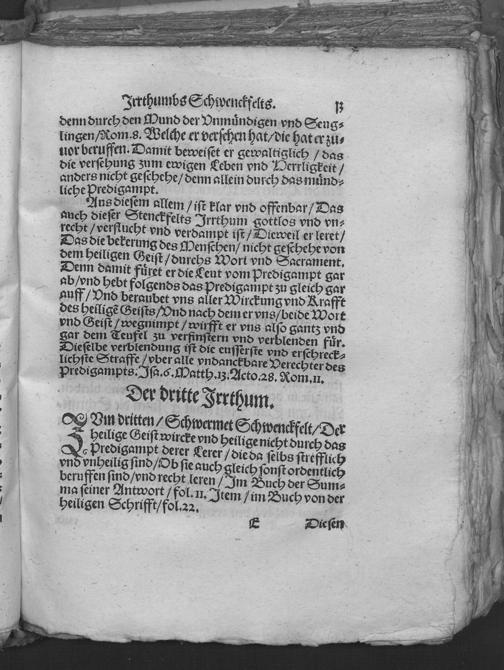 Jrrthumbs Schwenckfelts. 13
denn durch den Mund der Vnmündigen vnd Seug-
lingen/Rom.8. Welche er versehen hat/die hat er zu-
uor beruffen. Damit beweiset er gewaltiglich / das
die versehung zum ewigen Leben vnd Herrligkeit /
anders nicht geschehe/denn allein durch das münd-
liche Predigampt.
Aus diesem allem / ist klar vnd offenbar / Das
auch dieser Stenckfelts Jrrthum gottlos vnd vn-
recht / verflucht vnd verdampt ist / Dieweil er leret /
Das die bekerung des Menschen / nicht geschehe von
dem heiligen Geist / durchs Wort vnd Sacrament.
Denn damit füret er die Leut vom Predigampt gar
ab/vnd hebt folgends das Predigampt zu gleich gar
auff / Vnd beraubet vns aller Wirckung vnd Krafft
des heiligẽ Geists/Vnd nach dem er vns / beide Wort
vnd Geist / wegnimpt / wirfft er vns also gantz vnd
gar dem Teufel zu verfinstern vnd verblenden für.
Dieselbe verblendung ist die eusserste vnd erschreck-
lichste Straffe / vber alle vndanckbare Verechter des
Predigampts. Isa.6. Matth.13. Acto.28. Rom.11.
Der dritte Jrrthum.
ZVm dritten / Schwermet Schwenckfelt / Der
heilige Geist wircke vnd heilige nicht durch das
Predigampt derer Lerer / die da selbs strefflich
vnd vnheilig sind / Ob sie auch gleich sonst ordentlich
beruffen sind/vnd recht leren / Im Buch der Sum-
ma seiner Antwort / fol. 11. Item / im Buch von der
heiligen Schrifft / fol.22.
E Diesen